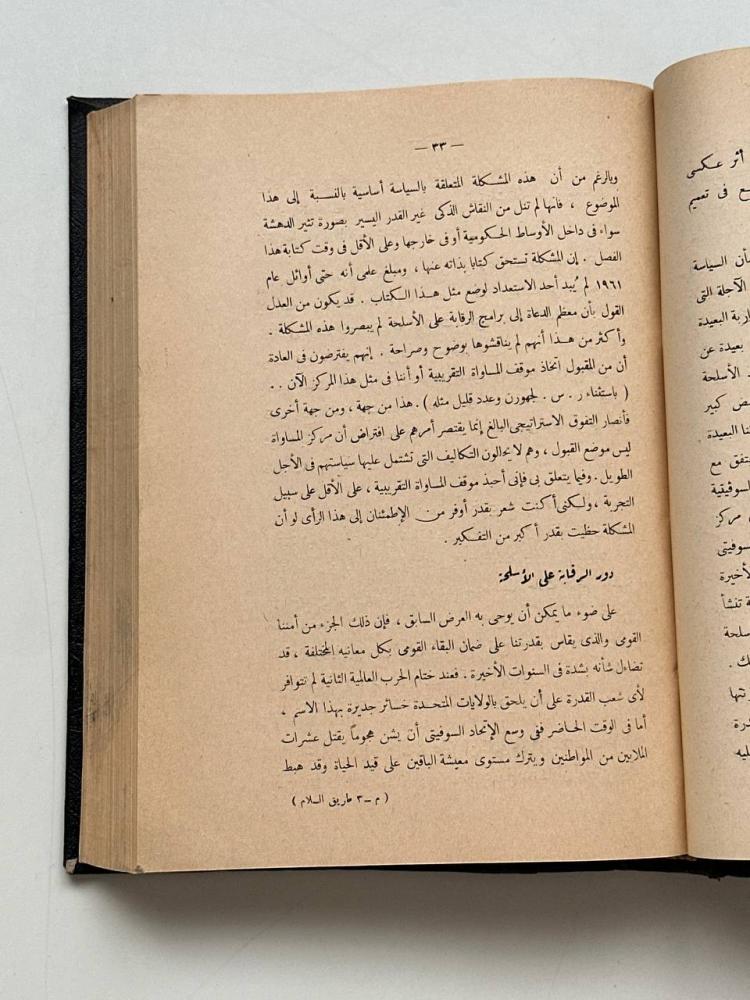 — ٣٣ —
وبالرغم من أن هذه المشكلة المتعلقة بالسياسة أساسية بالنسبة إلى هذا
الموضوع ، فانها لم تنل من النقاش الذكى غير القدر اليسير بصورة تثير الدهشة
سواء فى داخل الأوساط الحكومية أو فى خارجها وعلى الأقل فى وقت كتابة هذا
الفصل . إن المشكلة تستحق كتابا بذاته عنها ، ومبلغ علمى أنه حتى أوائل عام
١٩٦١ لم يُبد أحد الاستعداد لوضع مثل هذا الكتاب . قد يكون من العدل
القول بأن معظم الدعاة إلى برامج الرقابة على الأسلحة لم يبصروا هذه المشكلة .
وأكثر من هذا أنهم لم يناقشوها بوضوح وصراحة . إنهم يفترضون فى العادة
أن من المقبول اتخاذ موقف المساواة التقريبية أو أننا فى مثل هذا المركز الآن . .
( باستثناء ر . س . لجهورن وعدد قليل مثله ) . هذا من جهة ، ومن جهة أخرى
فأنصار التفوق الاستراتيجى البالغ إنما يقتصر أمرهم على افتراض أن مركز المساواة
ليس موضع القبول ، وهم لا يحالون التكاليف التى تشتمل عليها سياستهم فى الأجل
الطويل . وفيما يتعلق بى فإنى أحبذ موقف المساواة التقريبية ، على الأقل على سبيل
التجربة ، ولكنى أكنت شعر بقدر أوفر من الإطمئنان إلى هذا الرأى لو أن
المشكلة حظيت بقدر أكبر من التفكير .
دور الرقابة على الأسلحة
على ضوء ما يمكن أن يوحى به العرض السابق ، فإن ذلك الجزء من أمننا
القومى والذى يقاس بقدرتنا على ضمان البقاء القومى بكل معانيه المختلفة ، قد
تضاءل شأنه بشدة فى السنوات الأخيرة . فعند ختام الحرب العالمية الثانية لم تتوافر
لأى شعب القدرة على أن يلحق بالولايات المتحدة خسائر جديرة بهذا الاسم ،
أما فى الوقت الحاضر ففى وسع الإتحاد السوفيتى أن يشن هجوماً يقتل عشرات
الملايين من المواطنين ويترك مستوى معيشة الباقين على قيد الحياة وقد هبط
( م — ٣ طريق السلام )
أثر عكسى
فى تعميم
أن السياسة
الآجلة التى
البعيدة
بعيدة عن
الأسلحة
كبير
البعيدة
مع
السوفيتية
مركز
الأخيرة
تنشأ